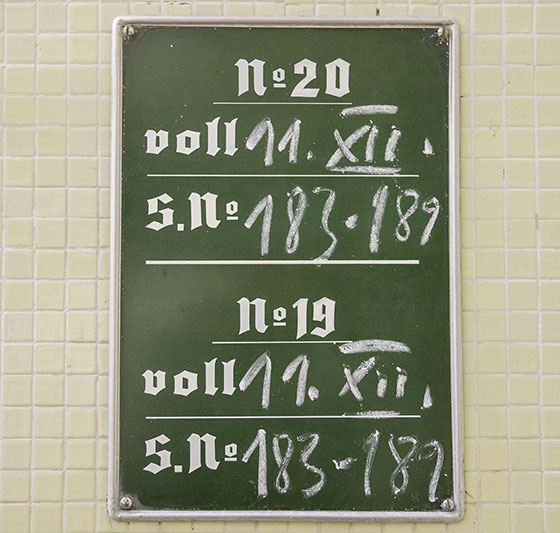 No 20
voll 11. XII.
S.No 183-189
No 19
voll 11. XII.
S.No 183-189